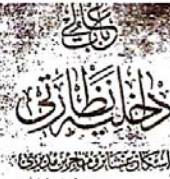 باب عالی
داخلیه نظارتی
اسکان عشایر و مهاجرین مدیریتی